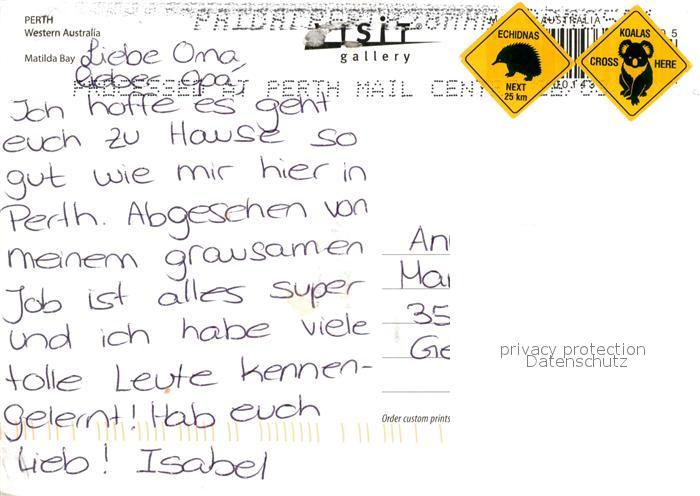 PERTH
Western Australia
Matilda Bay
Liebe Oma,
Lieber Opa,
Ich hoffe es geht
euch zu Hause so
gut wie mir hier in
Perth. Abgesehen von
meinem grausamen
Job ist alles super
und ich habe viele
tolle Leute kennen-
gelernt! Hab euch
lieb! Isabel
ViSiT
gallery
PERTH MAIL CENT
AUSTRALIA
ECHIDNAS
NEXT
25 km
KOALAS
CROSS HERE
An
Mar
35
Ge
privacy protection
Datenschutz
Order custom prints